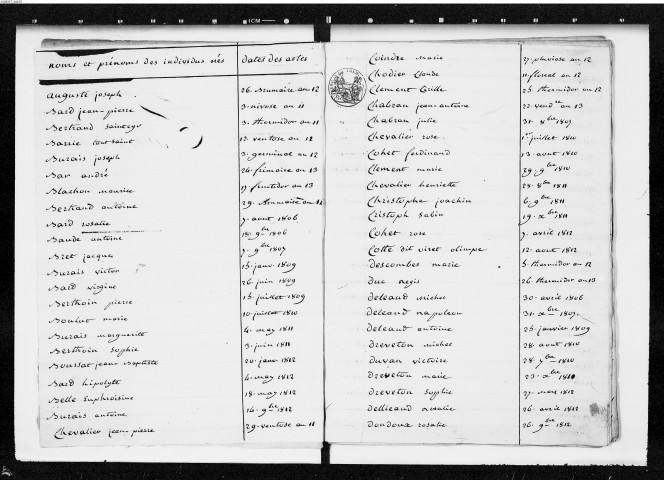 noms et prénoms des individus nés dates des actes
auguste joseph 26. Brumaire an 12
Bard jean-pierre 3. nivose an 11
Bertrand 3. thermidor an 11
Barrie toussaint 12. ventose an 12
Burais joseph 3. germinal an 12
Bar andré 26. frimaire an 13
Blachon maurice 17. fructidor an 13
Bertrand antoine 29. Brumaire an 14
Bard rosalie 7. aout 1806
Baude antoine 18. 9bre 1806
Bret jacques 7. 9bre 1807
Burais victor 15. janv. 1809
Bard virgine 26. juin 1809
Berthoin pierre 15. juillet 1809
Boulut marie 10. juillet 1810
Burais marguerite 4. may 1811
Berthoin sophie 3. juin 1811
Boussat jean-Baptiste 20. janv. 1812
Bard hipolyte 4. may 1812
Belle Euphroisine 18. may 1812
Burais antoine 16. 9bre 1812
Chevalier jean-pierre 29. ventose an 11
Coindre marie 27. pluviose an 12
Chodier Claude 11. floreal an 12
Clement Cécile 25. thermidor an 12
Chabran jean-antoine 22. vendre an 13
Chabran julie 31. 8bre 1807
Chevalier rose 1er juillet 1810
Cohet ferdinand 13. aout 1810
Clement marie 29. 9bre 1810
Chevalier henriette 28. 8bre 1811
Christophe joachin 6. 9bre 1811
Cristoph sabin 19. xbre 1811
Cohet rose 7. avril 1812
Cotte dit viret olimpe 12. aout 1812
Descombes marie 5. thermidor an 12
Duc régis 26. thermidor an 13
Deleaud michel 30. avril 1806
Deleaud napoleon 31. xbre 1807
Deleaud antoine 25. janvier 1809
Dreveton michel 28. aout 1810
Duvan victoire 28. 7bre 1810
Dreveton marie 23. xbre 1811
Dreveton sophie 27. mars 1812
Dellieaud rosalie 26. avril 1812
Doudoux rosalie 26. 9bre 1812